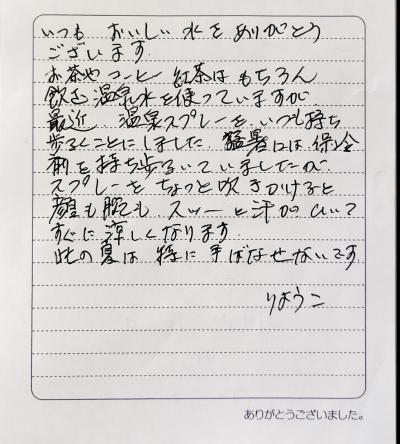 いつも おいしい 水を ありがとう
ございます
お茶や コーヒー 紅茶は もちろん
飲む 温泉水を使っていますが
最近 温泉スプレーを いつも持ち
歩るくことにしました 猛暑日は 保冷
剤を 持ち歩るいていましたが
スプレーを ちょっと 吹きかけると
顔も 腕も スッーと 汗が ひいて
すぐに 涼しくなります
此の夏は 特に 手ばなせないです
りょうこ
ありがとうございました。